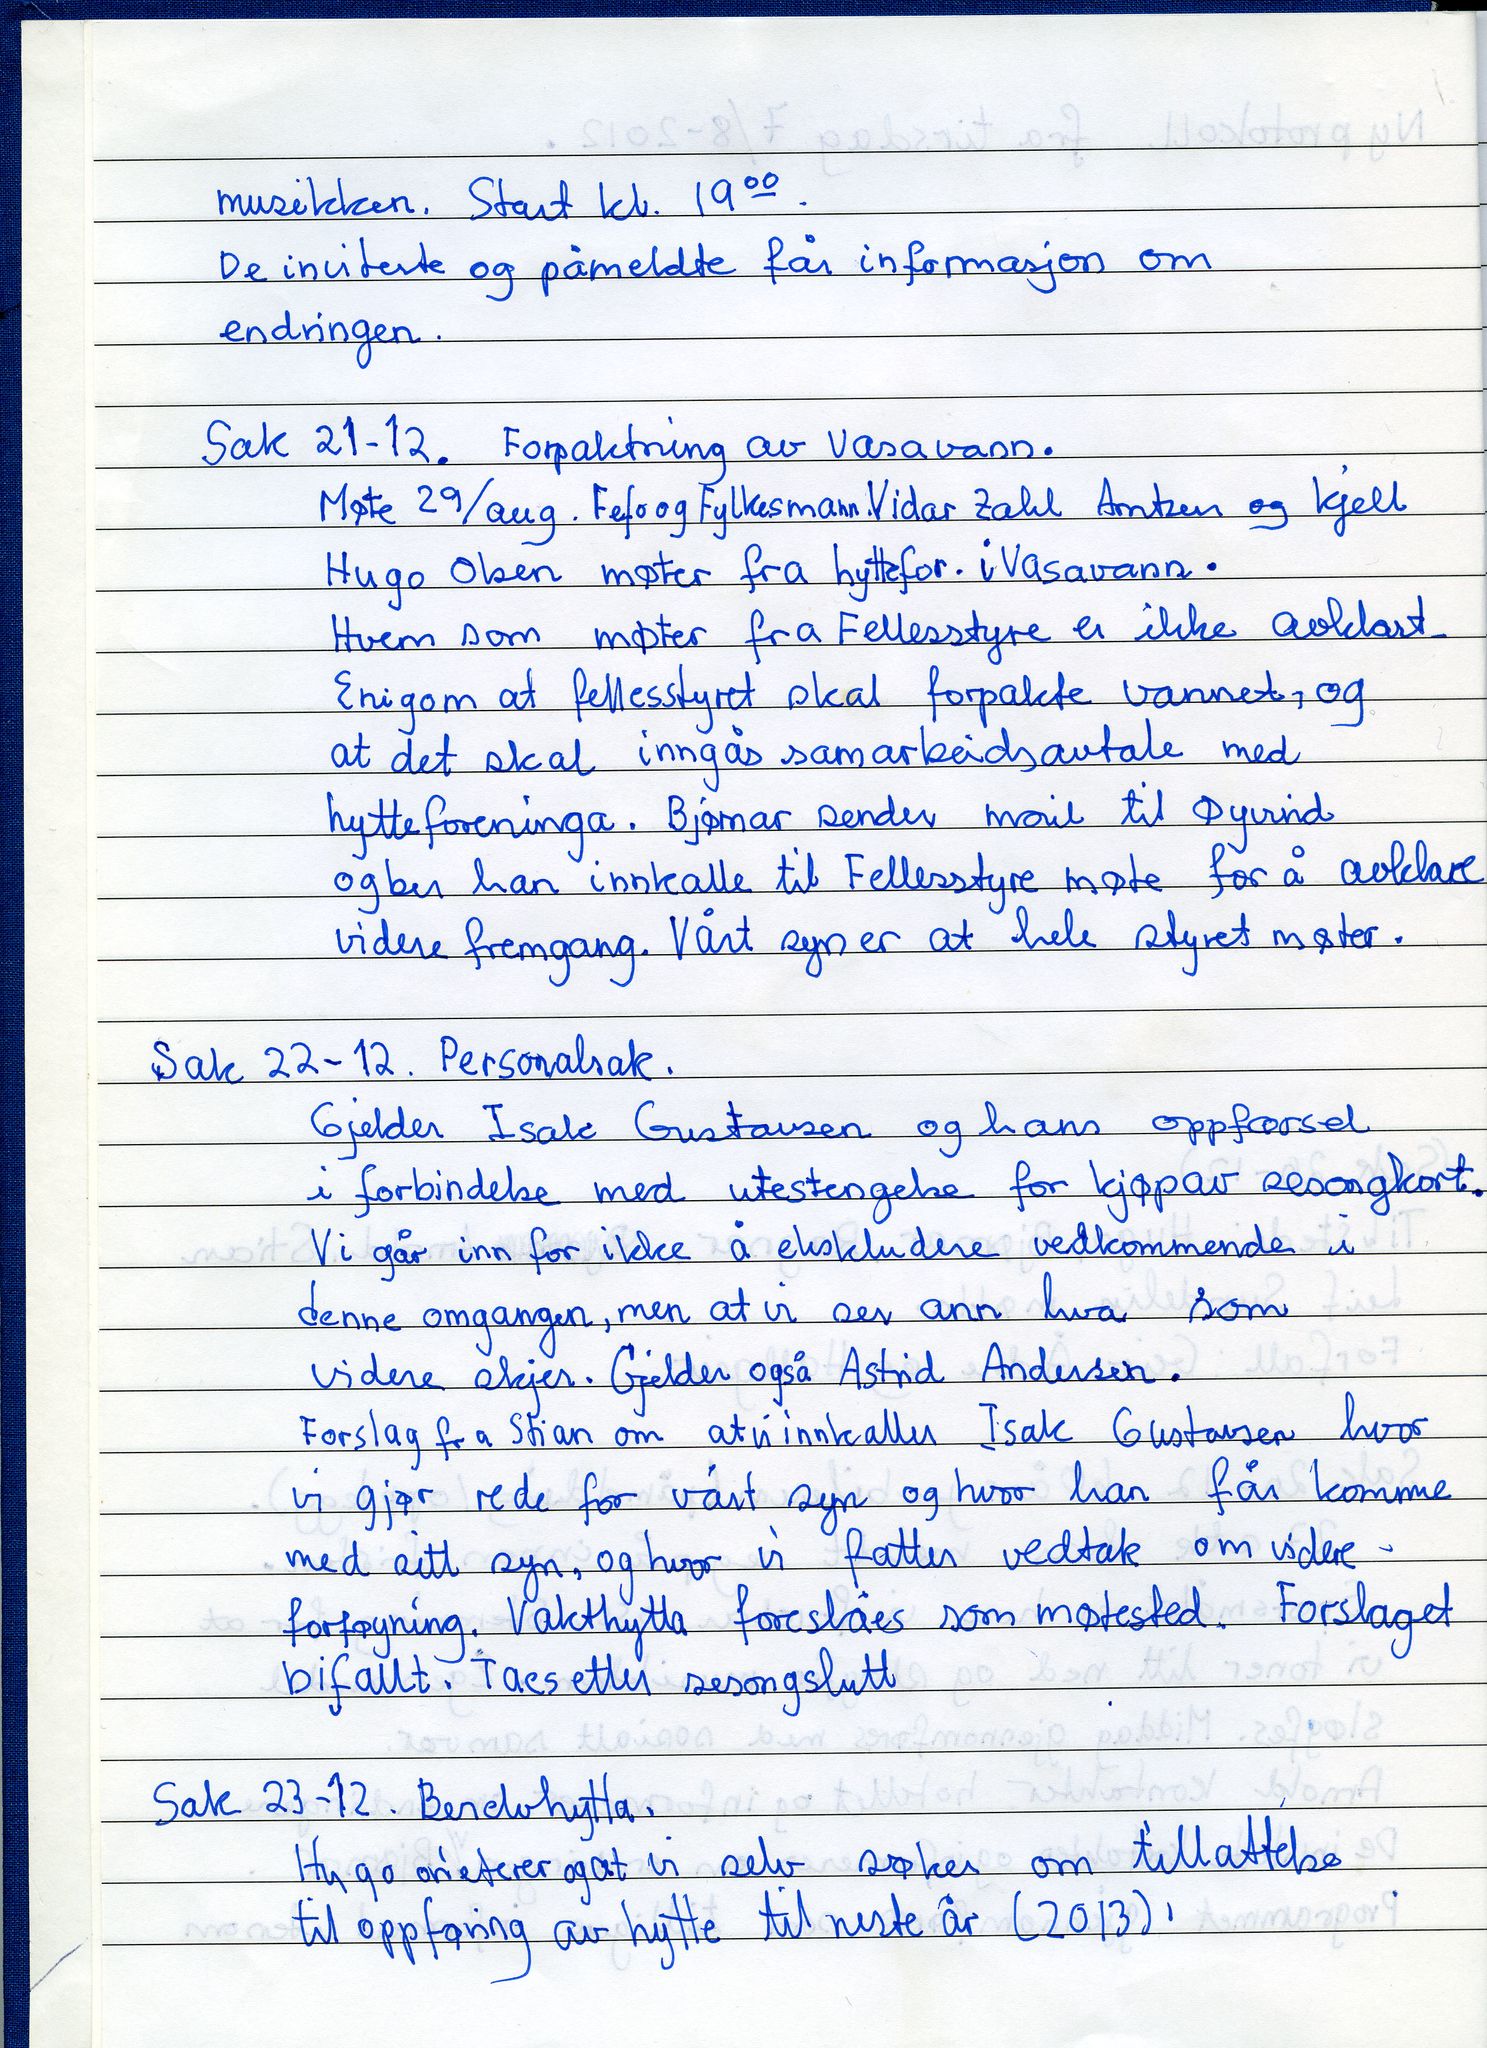 musikken. Start kl. 19⁰⁰.
De inviterte og påmeldte får informasjon om
endringen.
Sak 21-12. Forpaktning av Vasavann.
Møte 29/aug. Fefo og Fylkesmann. Vidar Zahl Arntzen og Kjell
Hugo Olsen møter fra hyttefor. i Vasavann.
Hvem som møter fra Fellesstyre er ikke avklart.
Enig om at fellesstyret skal forpakte vannet, og
at det skal inngås samarbeidsavtale med
hytteforeninga. Bjørnar sender mail til Øyvind
og ber han innkalle til Fellesstyre møte for å avklare
videre fremgang. Vårt syn er at hele styret møter.
Sak 22-12. Personalsak.
Gjelder Isak Gustavsen og hans oppførsel
i forbindelse med utestengelse for kjøp av sesongkort.
Vi går inn for ikke å ekskludere vedkommende i
denne omgangen, men at vi ser ann hva som
videre skjer. Gjelder også Astrid Andersen.
Forslag fra Stian om at vi innkaller Isak Gustavsen hvor
vi gjør rede for vårt syn og hvor han får komme
med sitt syn, og hvor vi fatter vedtak om videre
forføyning. Vakthytta foreslåes som møtested. Forslaget
bifallt. Taes etter sesongslutt
Sak 23-12. Bendohytta.
Hugo orieterer og at vi selv søker om tillattelse
til oppføring av hytte til neste år (2013).